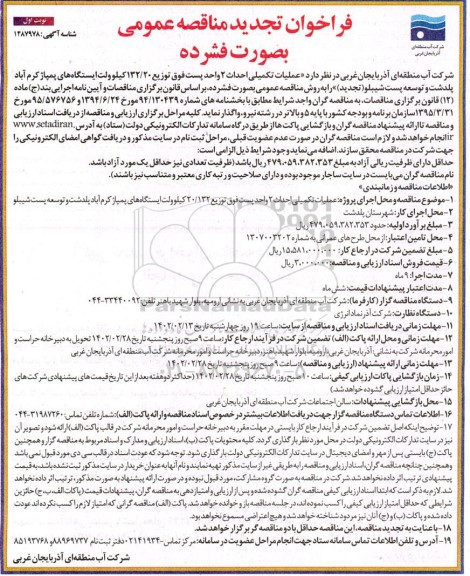 نوبت اول
شناسه آگهی: ۱۴۸۷۹۷۸
فراخوان تجدید مناقصه عمومی
بصورت فشرده
شرکت آب منطقه‌ای
آذربایجان غربی
شرکت آب منطقه‌ای آذربایجان غربی در نظر دارد «عملیات تکمیلی احداث ۲ واحد پست فوق توزیع ۱۳۲/۲۰ کیلوولت ایستگاه‌های پمپاژ کرم آباد
پلدشت و توسعه پست شیبلو (تجدید)» را به روش مناقصه عمومی بصورت فشرده، بر اساس قانون برگزاری مناقصات و آیین نامه اجرایی بند (ج) ماده
(۱۲) قانون برگزاری مناقصات، به مناقصه گران واجد شرایط مطابق با بخشنامه های شماره ۹۴/۱۳۰۴۳۹ مورخ ۱۳۹۴/۶/۲۴ و ۹۵/۵۷۶۷۵۶ مورخ
۱۳۹۵/۳/۳۱ سازمان برنامه و بودجه کشور با پایه ۵ و بالاتر در رشته نیرو، واگذار نماید. کلیه مراحل برگزاری ارزیابی و مناقصه از دریافت اسناد ارزیابی
و مناقصه تا ارائه پیشنهاد مناقصه گران و بازگشایی پاکت ها از طریق درگاه سامانه تدارکات الکترونیکی دولت (ستاد) به آدرس www.setadiran.
ir انجام خواهد شد و لازم است مناقصه گران در صورت عدم عضویت قبلی، مراحل ثبت نام در سایت مذکور و دریافت گواهی امضای الکترونیکی را
جهت شرکت در مناقصه محقق سازند. اضافه می نماید وجود شرایط ذیل الزامی است:
حداقل دارای ظرفیت ریالی آزاد به مبلغ ۴۷۹.۰۵۹.۳۸۲.۳۵۳ ریال باشد (ظرفیت تعدادی نیز حداقل یک مورد آزاد باشد.
نام مناقصه گران می بایست در سایت ساجار موجود بوده و دارای صلاحیت و رتبه کاری معتبر و متناسب نیز باشند).
«اطلاعات مناقصه و زمانبندی»
۱- موضوع مناقصه و محل اجرای پروژه: عملیات تکمیلی احداث ۲ واحد پست فوق توزیع ۲۰/۱۳۲ کیلوولت ایستگاه‌های پمپاژ کرم آباد پلدشت و توسعه پست شیبلو
۲- محل اجرای کار: شهرستان پلدشت
۳- مبلغ برآورد اولیه: حدود ۴۷۹.۰۵۹.۳۸۲.۳۵۳ ریال
۴- محل تامین اعتبار: از محل طرح های عمرانی به شماره ۱۳۰۷۰۰۳۲۰۲
۵- مبلغ تضمین شرکت در ارجاع کار: ۱۵.۵۸۱.۰۰۰.۰۰۰ ریال
۶- قیمت فروش اسناد ارزیابی و مناقصه: ۳.۰۰۰.۰۰۰ ریال
۷- مدت اجرا: ۹ ماه
۸- مدت اعتبار پیشنهادات قیمت: شش ماه
۹- دستگاه مناقصه گزار (کارفرما): شرکت آب منطقه‌ای آذربایجان غربی به نشانی ارومیه، بلوار شهید باهنر تلفن: ۳۳۴۴۰۰۹۲-۰۴۴
۱۰- دستگاه نظارت: شرکت آذر نماد انرژی
۱۱- مهلت زمانی دریافت اسناد ارزیابی و مناقصه از سایت: ساعت ۱۹ روز چهارشنبه تاریخ ۱۴۰۲/۰۲/۱۳
۱۲- مهلت زمانی و محل ارائه پاکت (الف) تضمین شرکت در فرآیند ارجاع کار: ساعت ۹ صبح روز پنجشنبه تاریخ ۱۴۰۲/۰۲/۲۸ تحویل به دبیرخانه حراست و
امور محرمانه شرکت به نشانی آذربایجان غربی، ارومیه، بلوار شهید باهنر، دبیرخانه حراست و امور محرمانه شرکت آب منطقه‌ای آذربایجان غربی
۱۳- مهلت زمانی ارائه پیشنهاد (ارزیابی و مناقصه): ساعت ۹ صبح روز پنجشنبه تاریخ ۱۴۰۲/۰۲/۲۸
۱۴- زمان بازگشایی پاکات ارزیابی کیفی: ساعت ۱۰ صبح روز پنجشنبه تاریخ ۱۴۰۲/۰۲/۲۸ (حداکثر دو هفته بعد از این تاریخ قیمت های پیشنهادی شرکت های
حائز حداقل امتیاز ارزیابی گشوده خواهد شد).
۱۵- محل بازگشایی پیشنهادات: سالن اجتماعات شرکت آب منطقه‌ای آذربایجان غربی
۱۶- اطلاعات تماس دستگاه مناقصه گزار جهت دریافت اطلاعات بیشتر در خصوص اسناد مناقصه و ارائه پاکت (الف): شماره تلفن تماس ۳۱۹۸۷۲۶۰-۰۴۴
۱۷- توضیح اینکه اصل تضمین شرکت در فرآیند ارجاع کار بایستی در مهلت مقرر به دبیرخانه حراست و امور محرمانه شرکت در قالب پاکت (الف) ارائه شود و تصویر آن
نیز در سایت تدارکات الکترونیکی دولت در محل مورد نظر بارگذاری گردد.
۱۸- با عنایت به تجدید مناقصه، این مناقصه حداقل با دو مناقصه گر برگزار خواهد شد.
۱۹- آدرس و تلفن اطلاعات تماس سامانه ستاد جهت انجام مراحل عضویت در سامانه: مرکز تماس ۰۲۱۴۱۹۳۴، دفتر ثبت نام ۸۸۹۶۹۷۳۷ و ۸۵۱۹۳۷۶۸
شرکت آب منطقه‌ای آذربایجان غربی